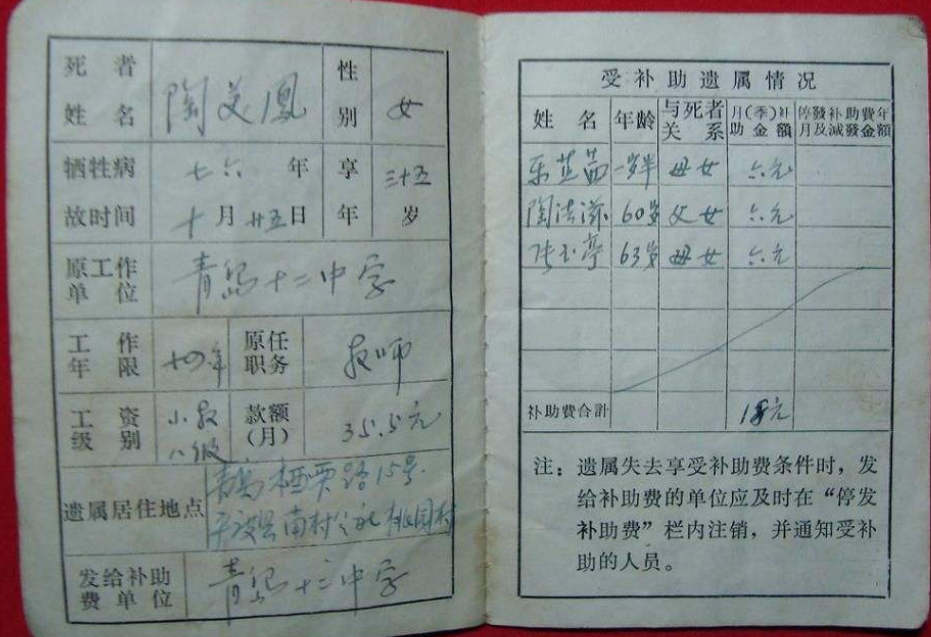 死者
姓名 陶美凤 性别 女
牺牲病故时间 七六年十月廿五日 享年 三十五岁
原工作单位 青岛十二中学
工作年限 十四年 原任职务 教师
工资级别 小教八级 款额(月) 35.5元
遗属居住地点 青岛栖栗路15号
平度县南村公社桃园村
发给补助费单位 青岛十二中学
受补助遗属情况
姓名 年龄 与死者关系 月(季)补助金额 停發补助費年月及減發金額
一岁半 母女 六元
陶洁 60岁 父女 六元
张玉亭 63岁 母女 六元
补助費合計 18元
注：遗属失去享受补助费条件时，发
给补助费的单位应及时在“停发
补助费”栏内注销，并通知受补
助的人员。